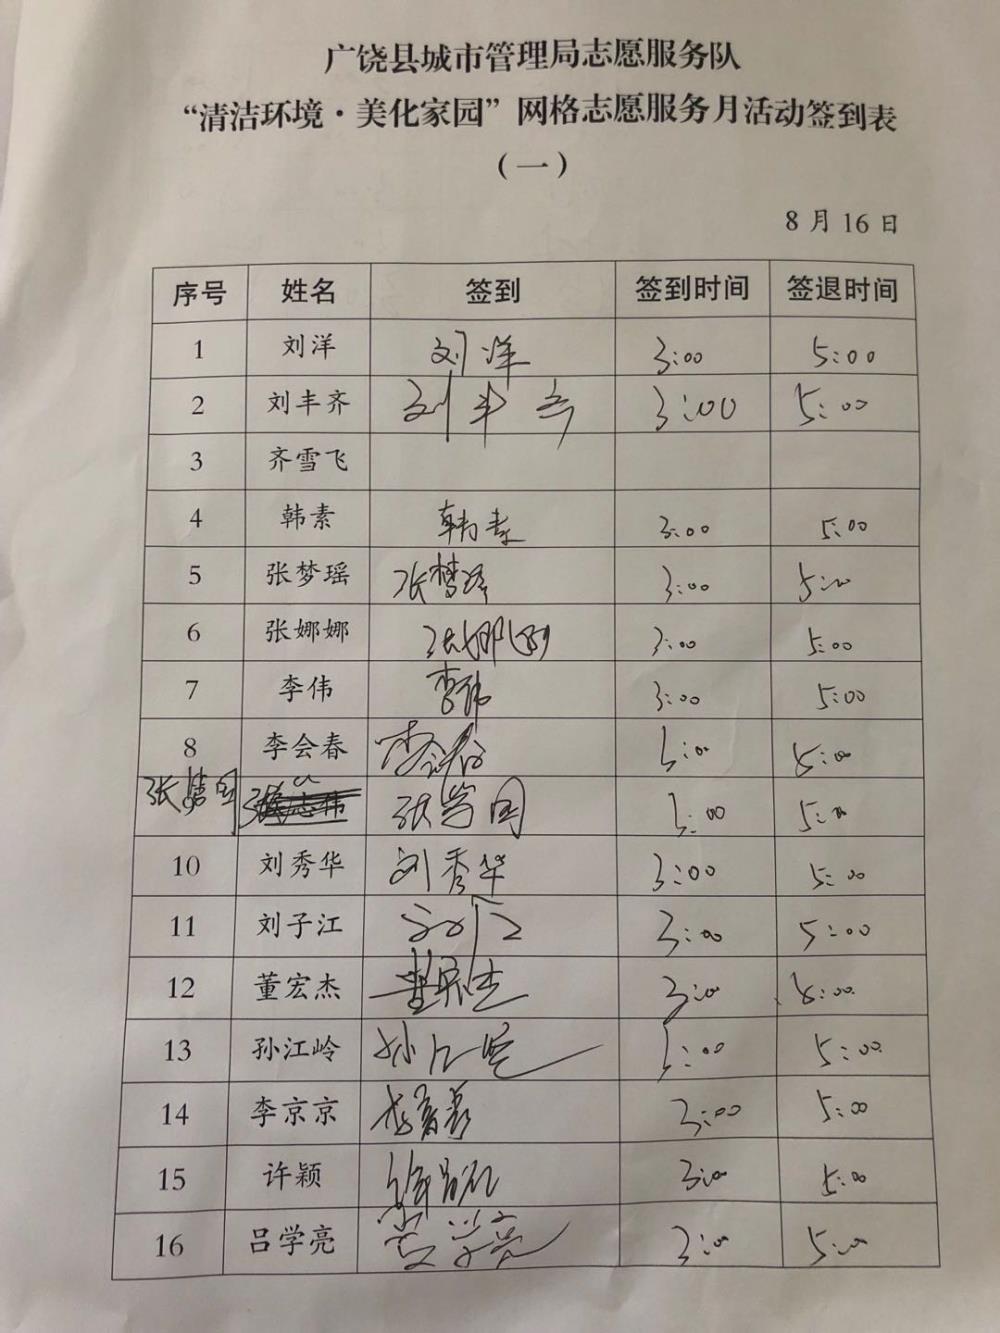 广饶县城市管理局志愿服务队
“清洁环境·美化家园”网格志愿服务月活动签到表
（一）
8月16日
序号 姓名 签到 签到时间 签退时间
1 刘洋 刘洋 3:00 5:00
2 刘丰齐 刘丰齐 3:00 5:00
3 齐雪飞
4 韩素 韩素 3:00 5:00
5 张梦瑶 张梦瑶 3:00 5:00
6 张娜娜 张娜娜 3:00 5:00
7 李伟 李伟 3:00 5:00
8 李会春 李会春 3:00 5:00
张 国 志伟 张 国 3:00 5:00
10 刘秀华 刘秀华 3:00 5:00
11 刘子江 刘子江 3:00 5:00
12 董宏杰 董宏杰 3:00 5:00
13 孙江岭 孙江岭 3:00 5:00
14 李京京 李京京 3:00 5:00
15 许颖 许颖 3:00 5:00
16 吕学亮 吕学亮 3:00 5:00